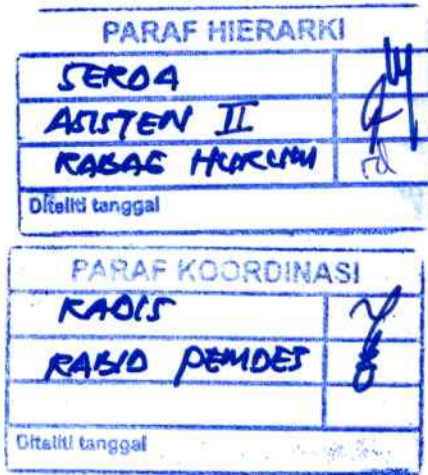 PARAF HIERARKI
SEKDA
ASISTEN II
KABAG HUKUM
Diteliti tanggal
PARAF KOORDINASI
KADIS
KABID PEMDES
Diteliti tanggal